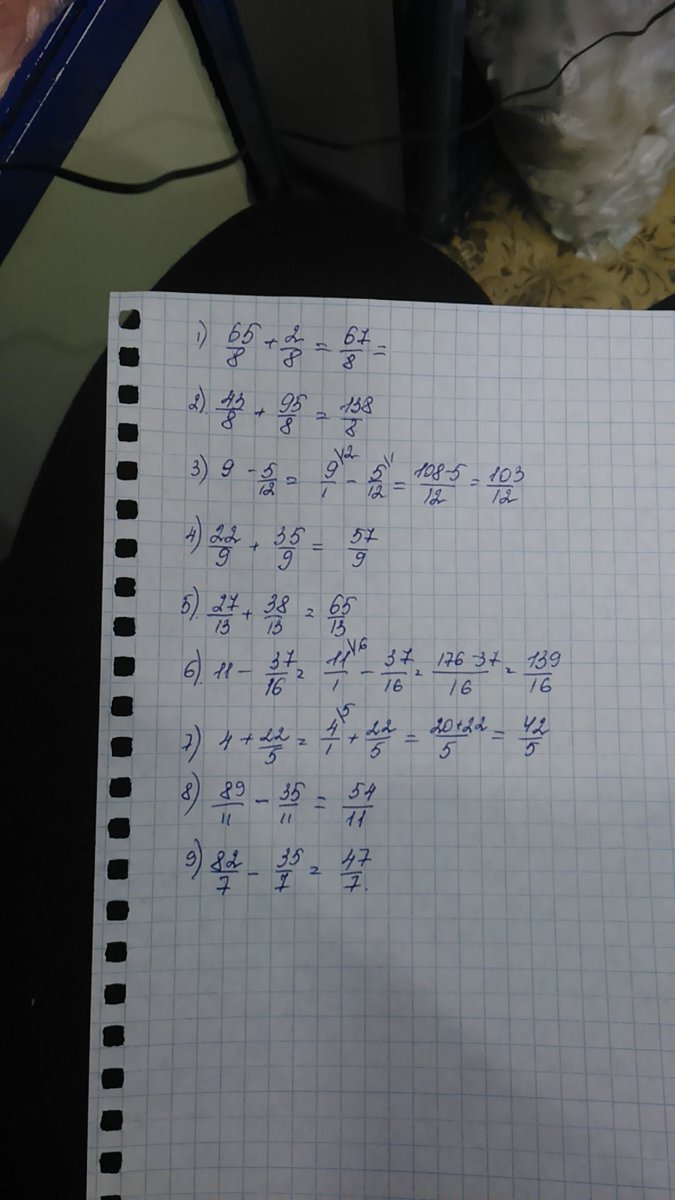 1) 65/8 + 2/8 = 67/8 =
2). 43/8 + 95/8 = 138/8
3) 9 - 5/12 = 9/1 \12 - 5/12 \1 = 108-5/12 = 103/12
4) 22/9 + 35/9 = 57/9
5). 27/13 + 38/13 = 65/13
6). 11 - 37/16 = 11/1 \16 - 37/16 = 176-37/16 = 139/16
7) 4 + 22/5 = 4/1 \5 + 22/5 = 20+22/5 = 42/5
8) 89/11 - 35/11 = 54/11
9) 82/7 - 35/7 = 47/7.